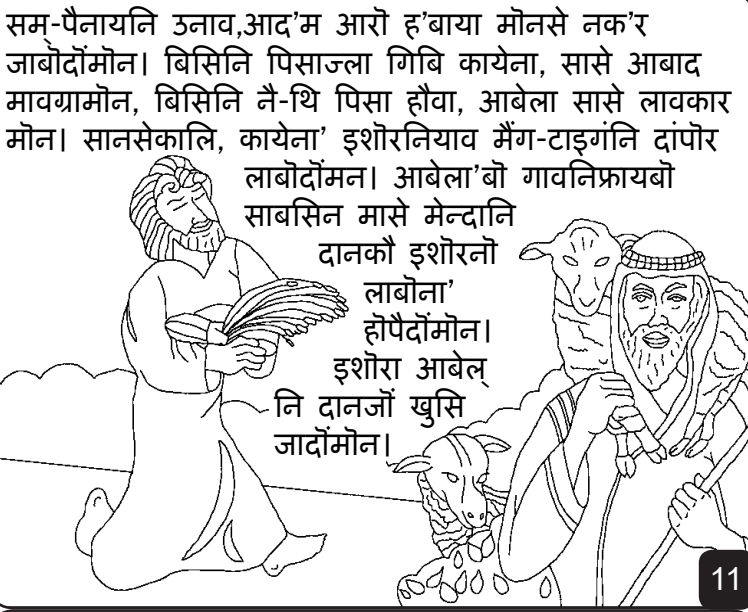 सम्-पैनायनि उनाव,आद’म आरॊ ह’बाया मॊनसे नक’र
जाबॊदोंमॊन। बिसिनि पिसाज्ला गिबि कायेना, सासे आबाद
मावग्रामॊन, बिसिनि नै-थि पिसा हौवा, आबेला सासे लावकार
मॊन। सानसेकालि, कायेना’ इशॊरनियाव मैंग-टाइगंनि दांपॊर
लाबॊदोंमन। आबेला’बॊ गावनिफ्रायबॊ
साबसिन मासे मेन्दानि
दानकौ इशॊरनॊ
लाबॊना’
हॊपैदोंमॊन।
इशॊरा आबेल्
नि दानजों खुसि
जादोंमॊन।
11